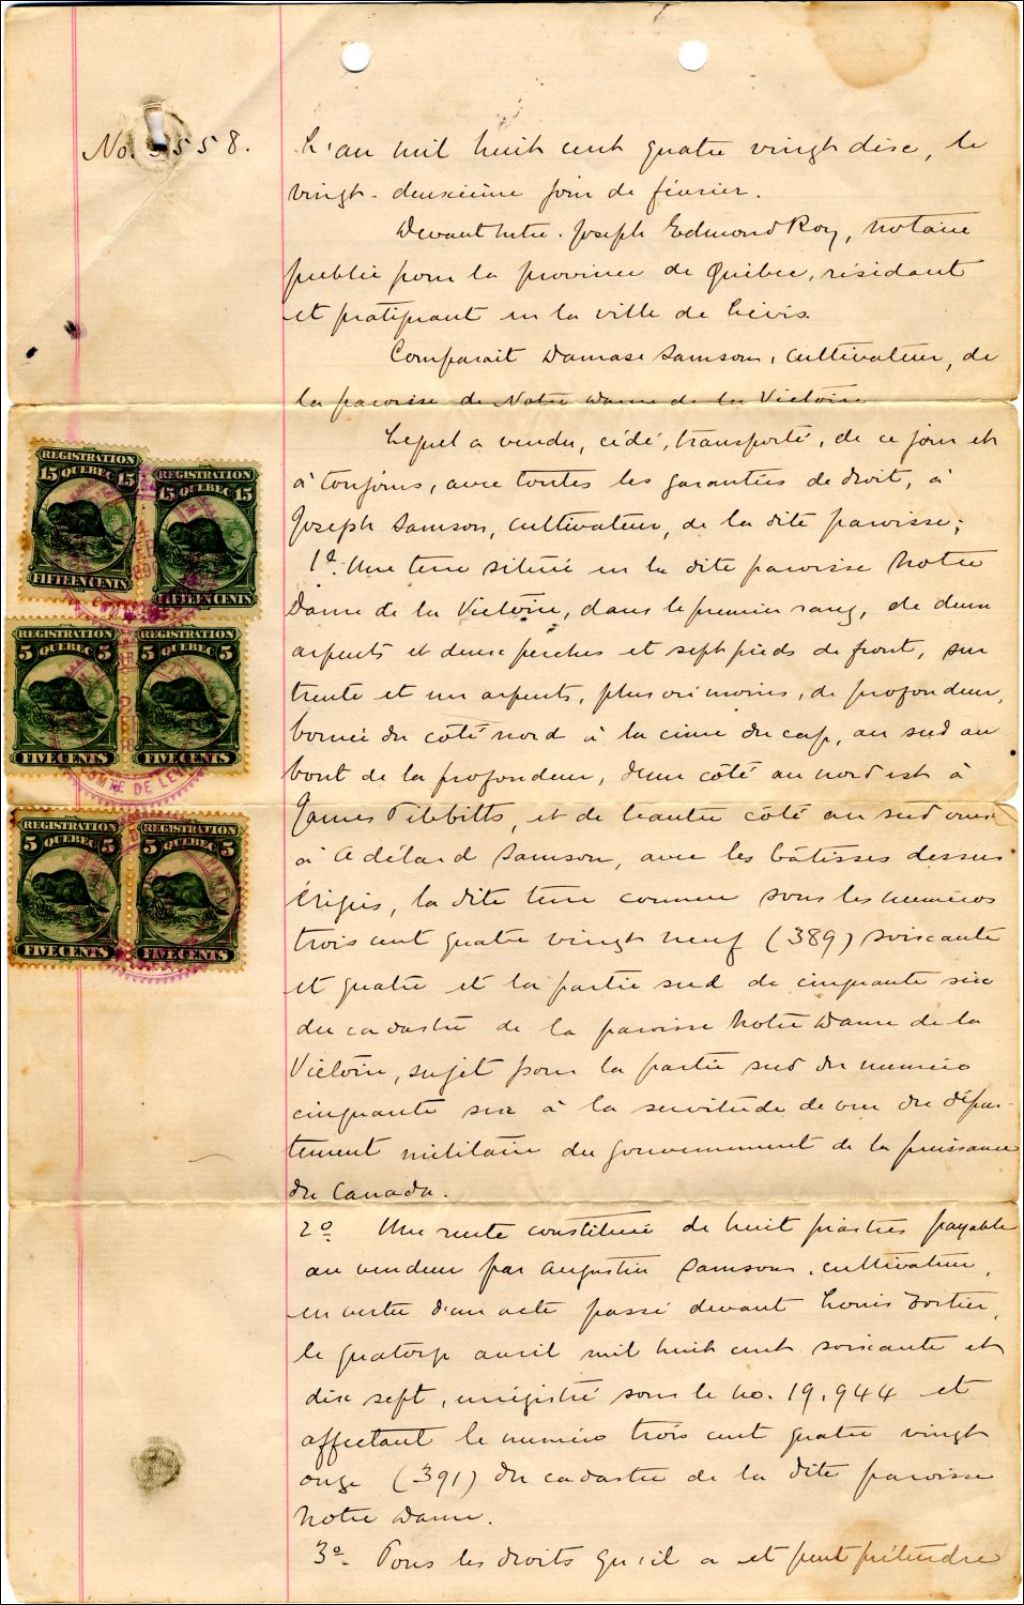 No. 5558.
L'an mil huit cent quatre vingt dix, le
vingt-deuxième jour de février.
Devant Mtre. Joseph Edmond Roy, notaire
public pour la province de Québec, résidant
et pratiquant en la ville de Lévis.
Comparait Damase Samson, cultivateur, de
la paroisse de Notre Dame de la Victoire
Lequel a vendu, cédé, transporté, de ce jour et
à toujours, avec toutes les garanties de droit, à
Joseph Samson, cultivateur, de la dite paroisse;
1o. Une terre située en la dite paroisse Notre
Dame de la Victoire, dans le premier rang, de deux
arpents et deux perches et sept pieds de front, sur
trente et un arpents, plus ou moins, de profondeur,
bornée du côté nord à la cime du cap, au sud au
bout de la profondeur, d'un côté au nord est à
James Tibbitts, et de l'autre côté au sud ouest
à Adélard Samson, avec les bâtisses dessus
érigées, la dite terre connue sous les numéros
trois cent quatre vingt neuf (389) soixante
et quatre et la partie sud de cinquante six
du cadastre de la paroisse Notre Dame de la
Victoire, sujet pour la partie sud du numéro
cinquante six à la servitude de vue du dépar-
tement militaire du gouvernement de la puissance
du Canada.
2o. Une rente constituée de huit piastres payable
au vendeur par Augustin Samson, cultivateur,
en vertu d'un acte passé devant Louis Fortier,
le quatorze avril mil huit cent soixante et
dix sept, enrégistré sous le no. 19,944 et
affectant le numéro trois cent quatre vingt
onze (391) du cadastre de la dite paroisse
Notre Dame.
3o. Tous les droits qu'il a et peut prétendre
REGISTRATION
15 QUEBEC 15
FIFTEEN CENTS
REGISTRATION
15 QUEBEC 15
FIFTEEN CENTS
REGISTRATION
5 QUEBEC 5
FIVE CENTS
REGISTRATION
5 QUEBEC 5
FIVE CENTS
COMTÉ DE LEVIS
REGISTRATION
5 QUEBEC 5
FIVE CENTS
REGISTRATION
5 QUEBEC 5
FIVE CENTS